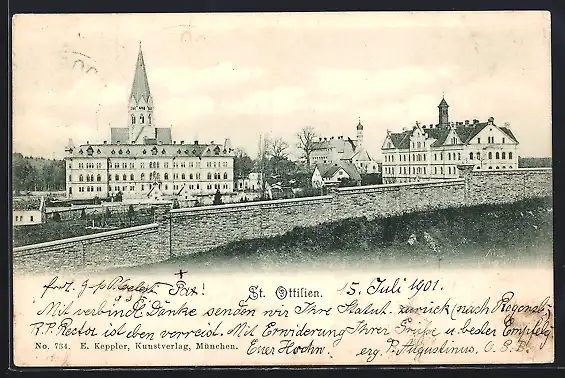 Pax!
St. Ottilien.
15. Juli 1901.
Mit verbindl. Danke senden wir Ihre Statut. zurück (nach Regensb.)
R.P. Rector ist eben verreist. Mit Erwiderung Ihrer Grüße u. bester Empfehlg
Euer Hochw. erg. P. Augustinus, O.S.B.
No. 734. E. Keppler, Kunstverlag, München.